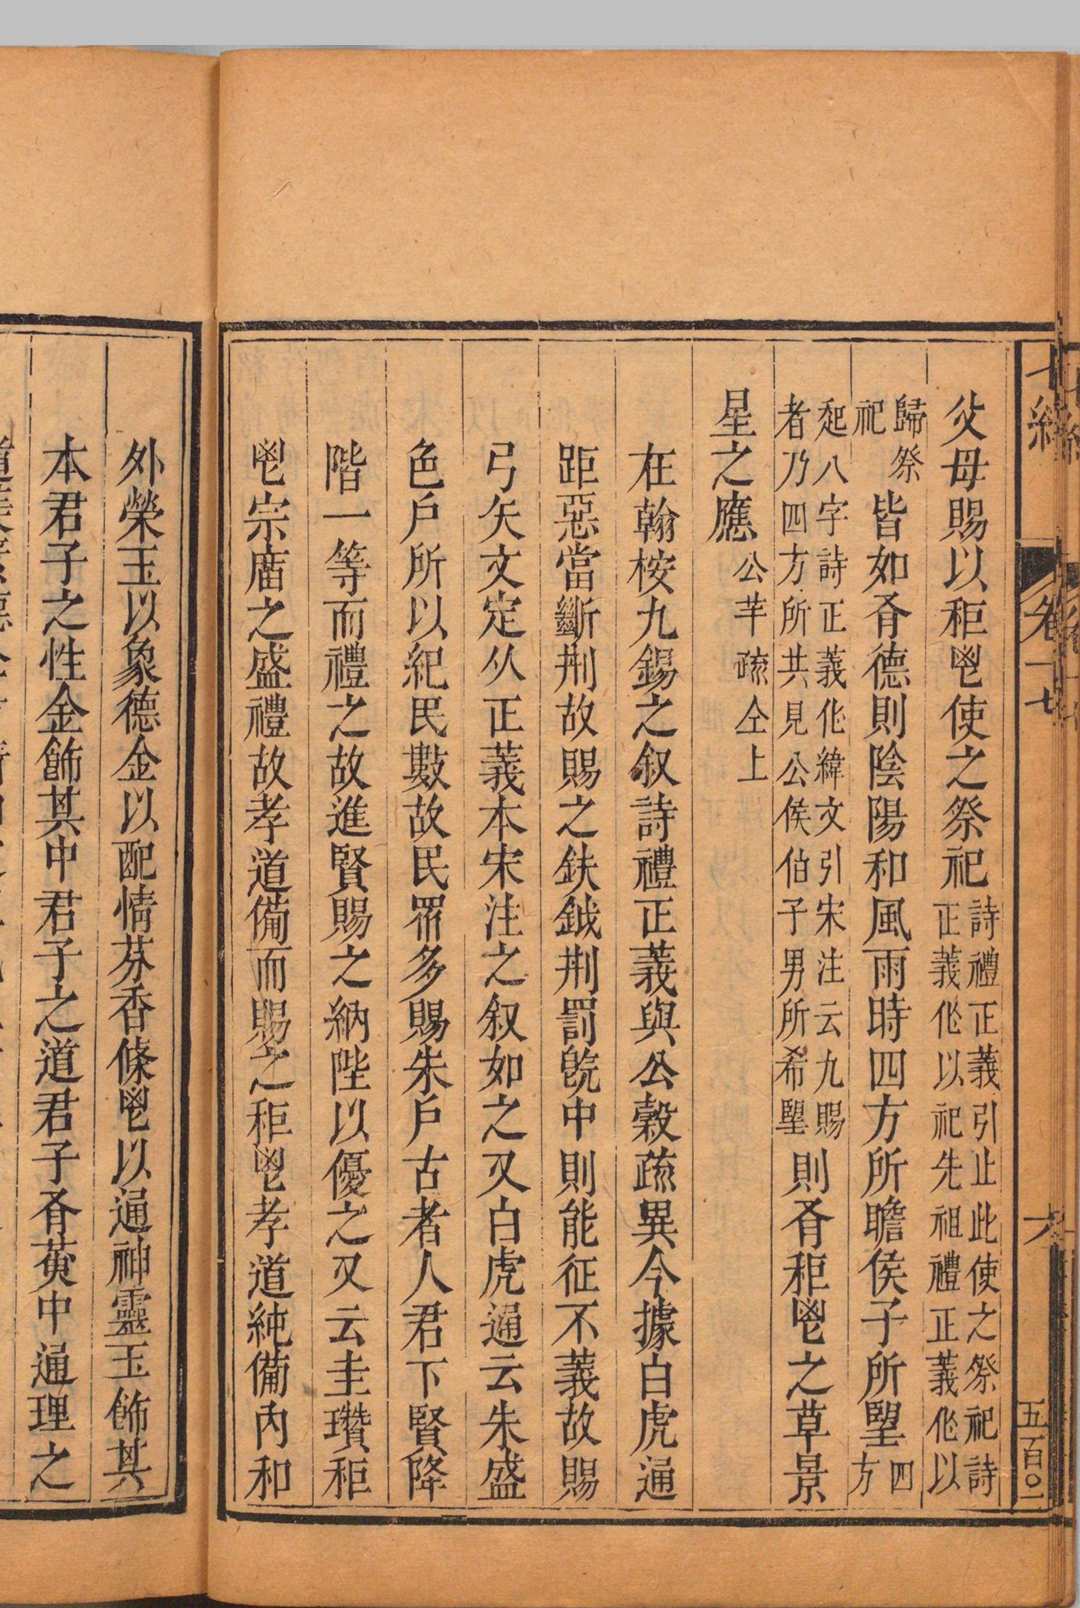 父母賜以秬鬯使之祭祀詩禮正義引止此使之祭祀詩正義作以祀先祖禮正義作以
歸祭祀皆如有德則陰陽和風雨時四方所瞻侯子所望四方
起八字詩正義作緯文引宋注云九賜者乃四方所共見公侯伯子男所希望則有秬鬯之草景
星之應公羊疏仝上
在翰桉九錫之叙詩禮正義與公穀疏異今據白虎通
距惡當斷刑故賜之鈇鉞刑罰旣中則能征不義故賜
弓矢文定从正義本宋注之叙如之又白虎通云朱盛
色戶所以紀民數故民眔多賜朱戶古者人君下賢降
階一等而禮之故進賢賜之納陛以優之又云圭瓚秬
鬯宗庿之盛禮故孝道備而賜之秬鬯孝道純備內和
外榮玉以象德金以配情芬香條鬯以通神靈玉飾其
本君子之性金飾其中君子之道君子有黃中通理之
卷十七
六
五百〇一